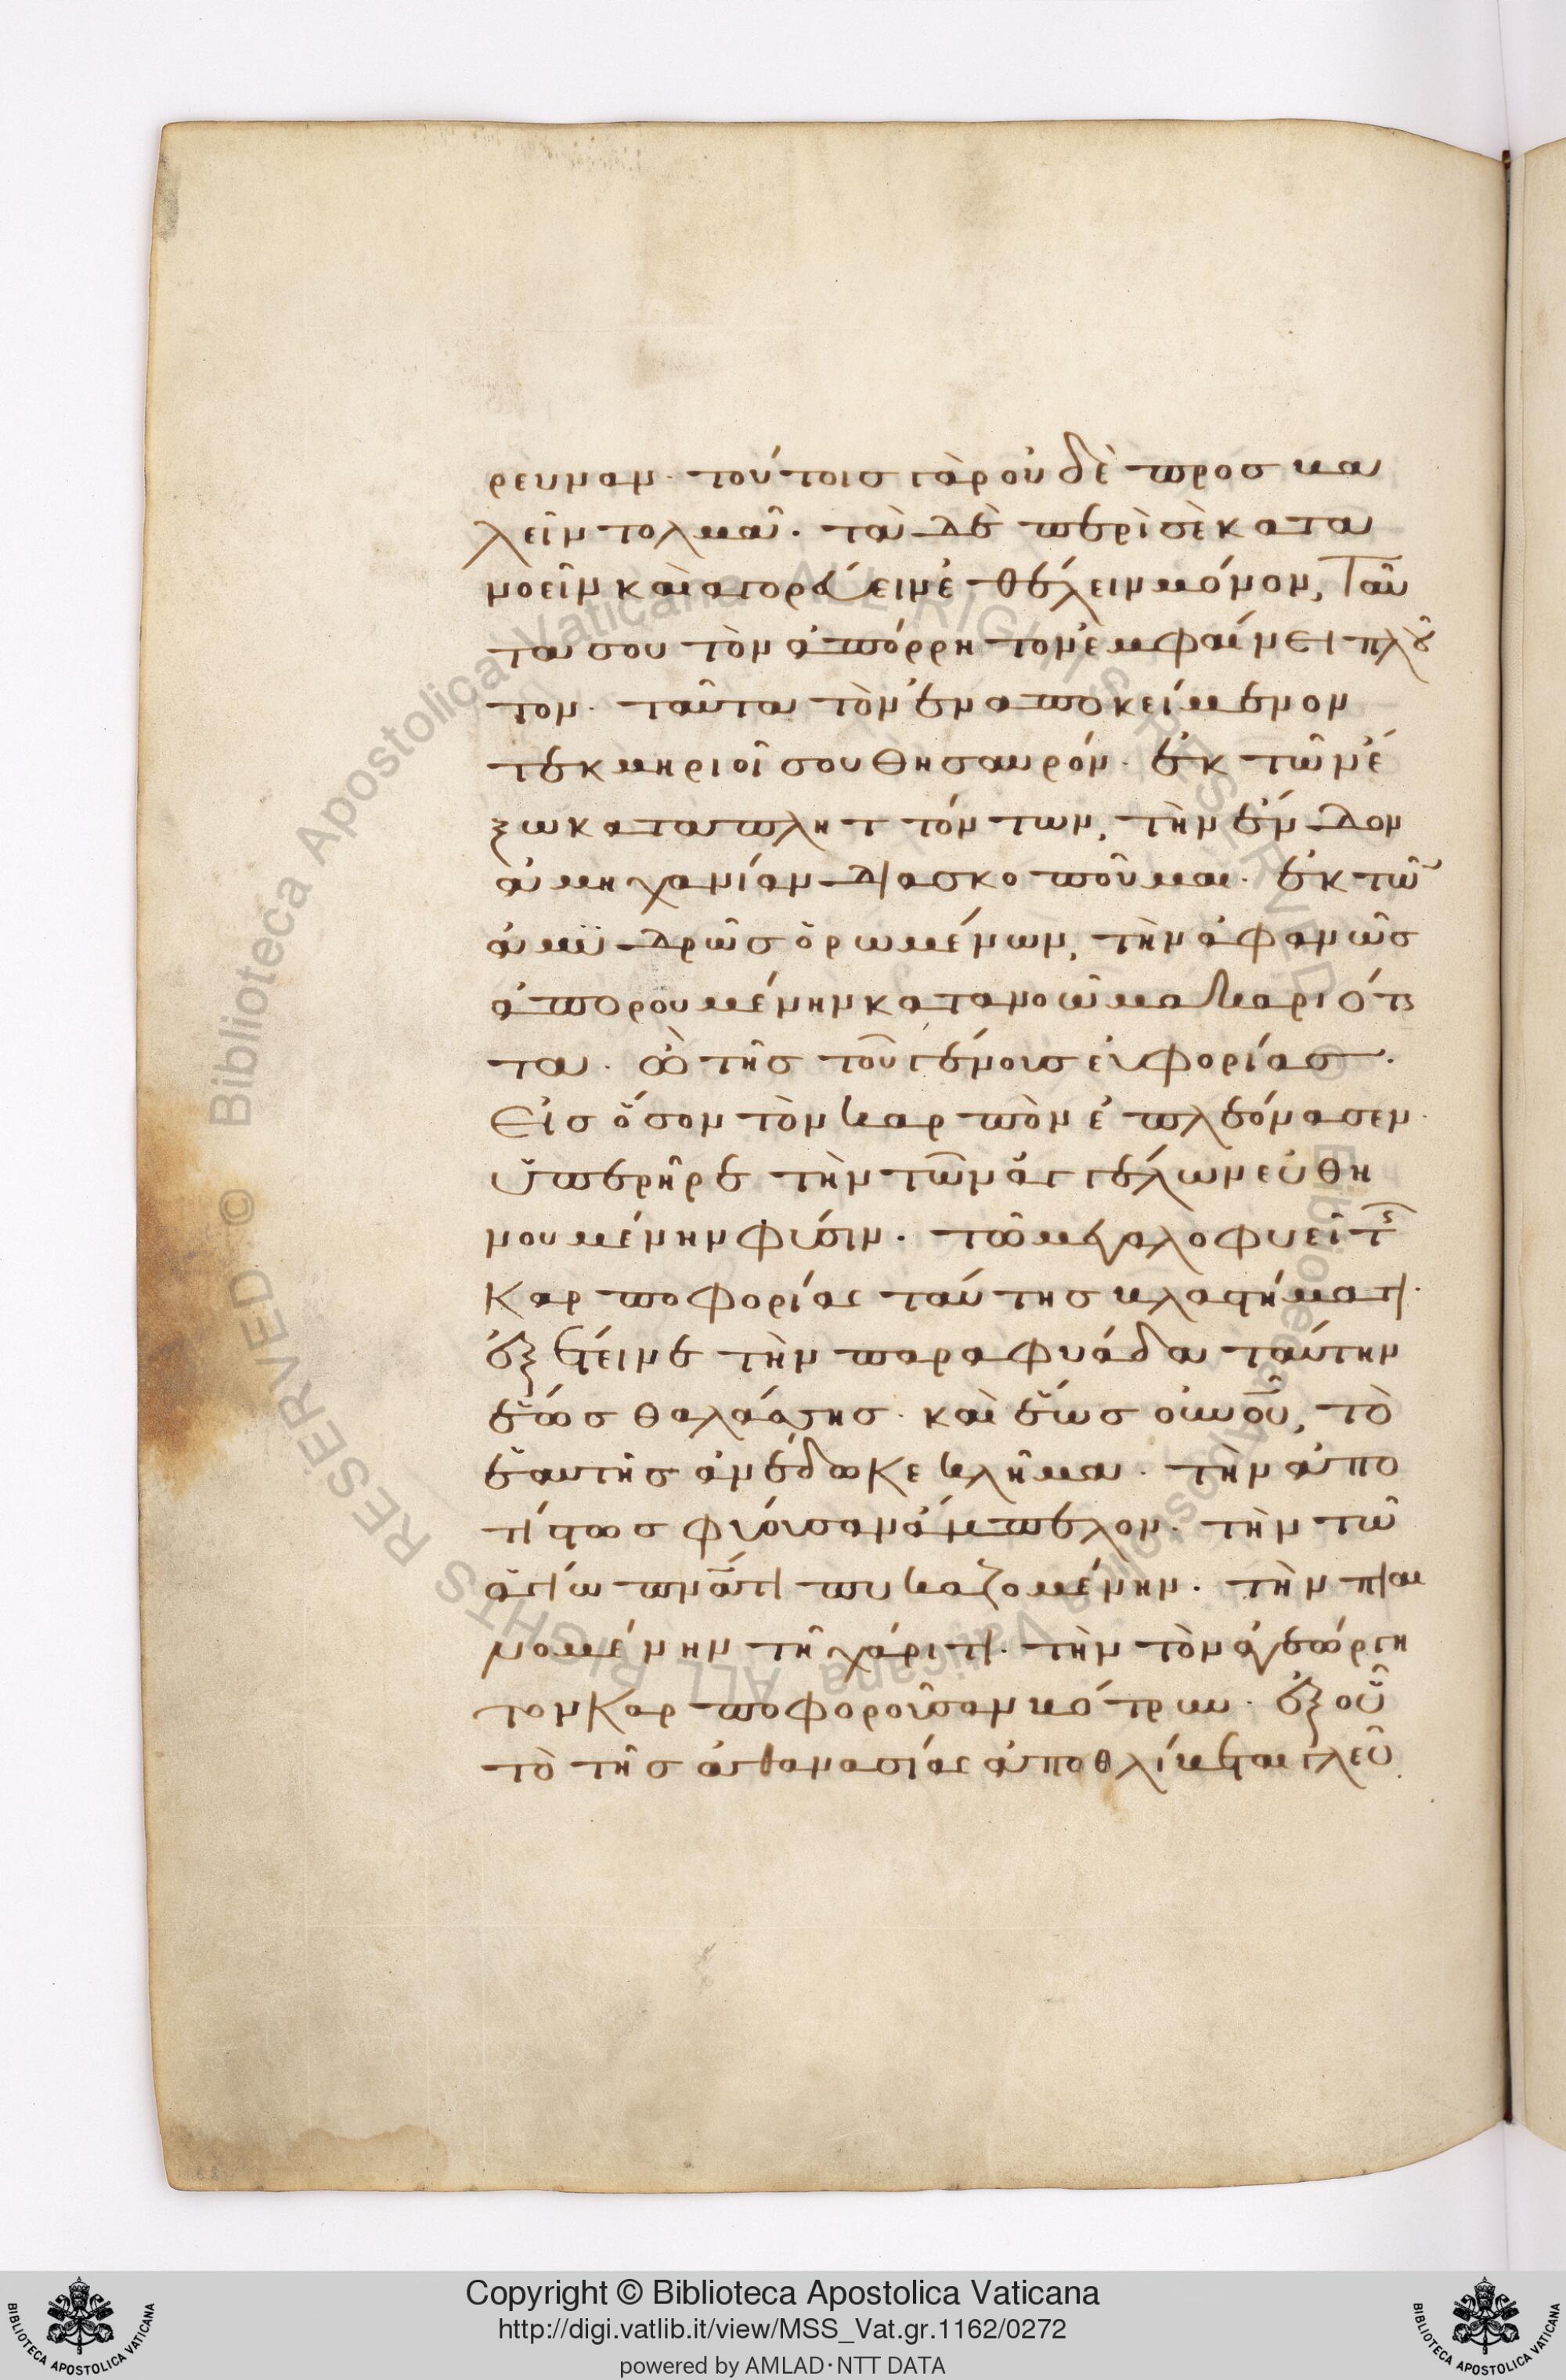 ρευναν· τούτοις γὰρ οὐδὲ προσκα
λεῖν τολμᾶ· τὰ δὲ περὶ σὲ κατα
νοεῖν καὶ ἀγοράζειν ἐθέλειν μόνον, Ταῦ
τα σου τὸν ἀπόρρητον ἐμφαίνει πλοῦ
τον· ταῦτα τὸν ἐναποκείμενον
τεκμηριοῖ σου θησαυρόν· ἐκ τῶν ἔ
ξω καταπληττόντων, τὴν ἔνδον
ἀμηχανίαν διασκοποῦμαι· ἐκ τῶν
ἀμυδρῶς ὁρωμένων, τὴν ἀφανῶς
ἀπορουμένην κατανοῶ μακαριότη
τα· ὢ τῆς τοῦ γένους εὐφορίας·
Εἰς ὅσον τὸν καρπὸν ἐπλεόνασεν·
ὑπερῆρε τὴν τῶν ἀγγέλων εὐθη
νουμένην φύσιν· τῶ μεγαλοφυεῖ τῆς
καρποφορίας ταύτης κλαδήματι·
ἐξέτεινε τὴν παραφυάδα ταύτην
ἕως θαλάσσης· καὶ ἕως οὐνοῦ, τὸ
ἑαυτῆς ἀνέδωκε κλῆμα· τὴν ἀπὸ
γῆς φύουσαν ἄμπελον· τὴν τῶ
ἁγίω πνεύματι πυκαζομένην· τὴν πιαι
νομένην τῆ χάριτι· τὴν τὸν ἀγεώργη
τον καρποφοροῦσαν βότρυν· ἐξ οὗ
τὸ τῆς ἀθανασίας ἀποθλίβεται γλεῦ
Copyright © Biblioteca Apostolica Vaticana
http://digi.vatlib.it/view/MSS_Vat.gr.1162/0272
powered by AMLAD·NTT DATA
BIBLIOTECA APOSTOLICA VATICANA
BIBLIOTECA APOSTOLICA VATICANA